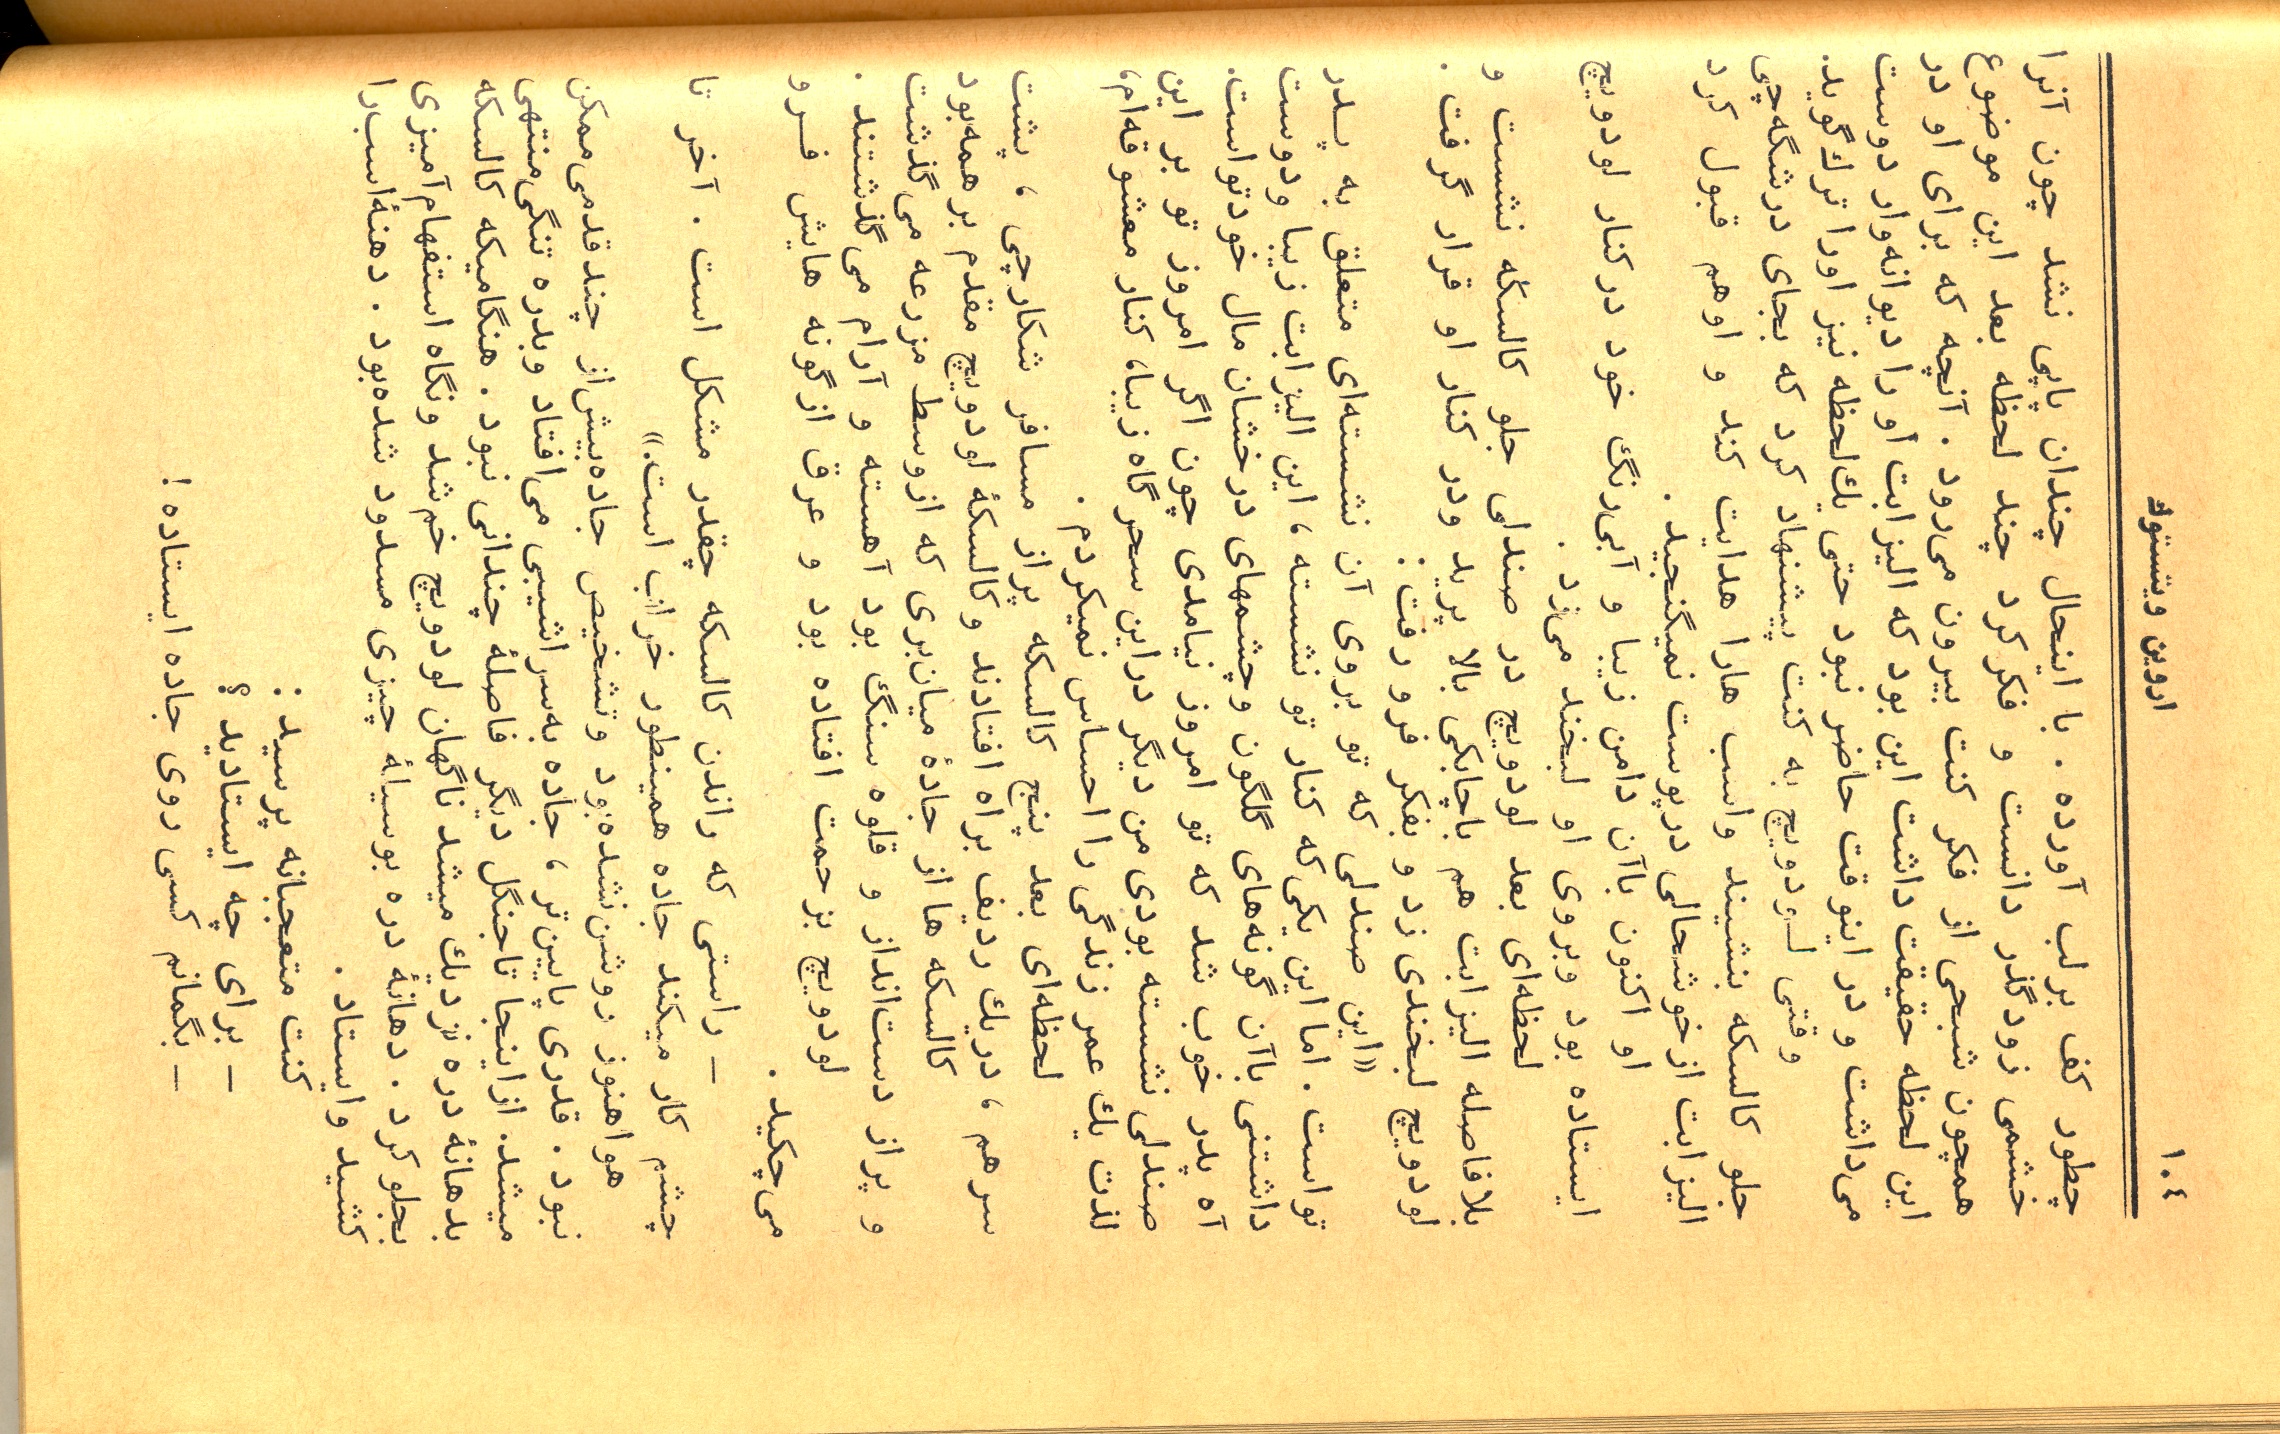 ١٠٤
اروین ویشتوك
چطور كف برلب آورده . با اینحال چندان پاپی نشد چون آنرا
خشمی زودگذر دانست و فكر كرد چند لحظه بعد این موضوع
همچون شبحی از فكر كنت بیرون می‌رود . آنچه كه برای او در
این لحظه حقیقت داشت این بود كه الیزابت او را دیوانه‌وار دوست
می‌داشت و در اینوقت حاضر نبود حتی یك‌لحظه نیز اورا ترك گوید.
وقتی لودویچ به كنت پیشنهاد كرد كه بجای درشگه‌چی
جلو كالسكه بنشیند واسب هارا هدایت كند و اوهم قبول كرد
الیزابت ازخوشحالی درپوست نمیگنجید .
او اكنون باآن دامن زیبا و آبی‌رنگ خود دركنار لودویچ
ایستاده بود وبروی او لبخند می‌زد .
لحظه‌ای بعد لودویچ در صندلی جلو كالسگه نشست و
بلافاصله الیزابت هم باچابكی بالا پرید ودر كنار او قرار گرفت .
لودویچ لبخندی زد و بفكر فرو رفت :
«این صندلی كه تو بروی آن نشسته‌ای متعلق به پدر
تواست . اما این یكی‌كه كنار تو نشسته ، این الیزابت زیبا ودوست
داشتنی باآن گونه‌های گلگون وچشمهای درخشان مال خودتواست.
آه پدر خوب شد كه تو امروز نیامدی چون اگر امروز تو بر این
صندلی نشسته بودی من دیگر دراین سحرگاه زیبا، كنار معشوقه‌ام،
لذت یك عمر زندگی را احساس نمیكردم .
لحظه‌ای بعد پنج كالسكه پراز مسافر شكارچی ، پشت
سرهم ، دریك ردیف براه افتادند وكالسكهٔ لودویچ مقدم برهمه‌بود
كالسكه ها از جادهٔ میان‌بری كه ازوسط مزرعه می‌گذشت
و پراز دست‌انداز و قلوه سنگ بود آهسته و آرام می‌گذشتند .
لودویچ بزحمت افتاده بود و عرق ازگونه هایش فرو
می‌چكید .
– راستی كه راندن كالسكه چقدر مشكل است . آخر تا
چشم كار میكند جاده همینطور خراب است.»
هواهنوز روشن‌نشده‌بود وتشخیص جاده‌بیش‌از چندقدمی‌ممكن
نبود . قدری پایین‌تر ، جاده به‌سراشیبی می‌افتاد وبدره تنگی‌منتهی
میشد. ازاینجا تاجنگل دیگر فاصلهٔ چندانی نبود . هنگامیكه كالسكه
بدهانهٔ دره نزدیك میشد ناگهان لودویچ خم‌شد ونگاه استفهام‌آمیزی
بجلو كرد . دهانهٔ دره بوسیلهٔ چیزی مسدود شده‌بود . دهنهٔ‌اسب‌را
كشید وایستاد .
كنت متعجبانه پرسید :
– برای چه ایستادید ؟
– بگمانم كسی روی جاده ایستاده !